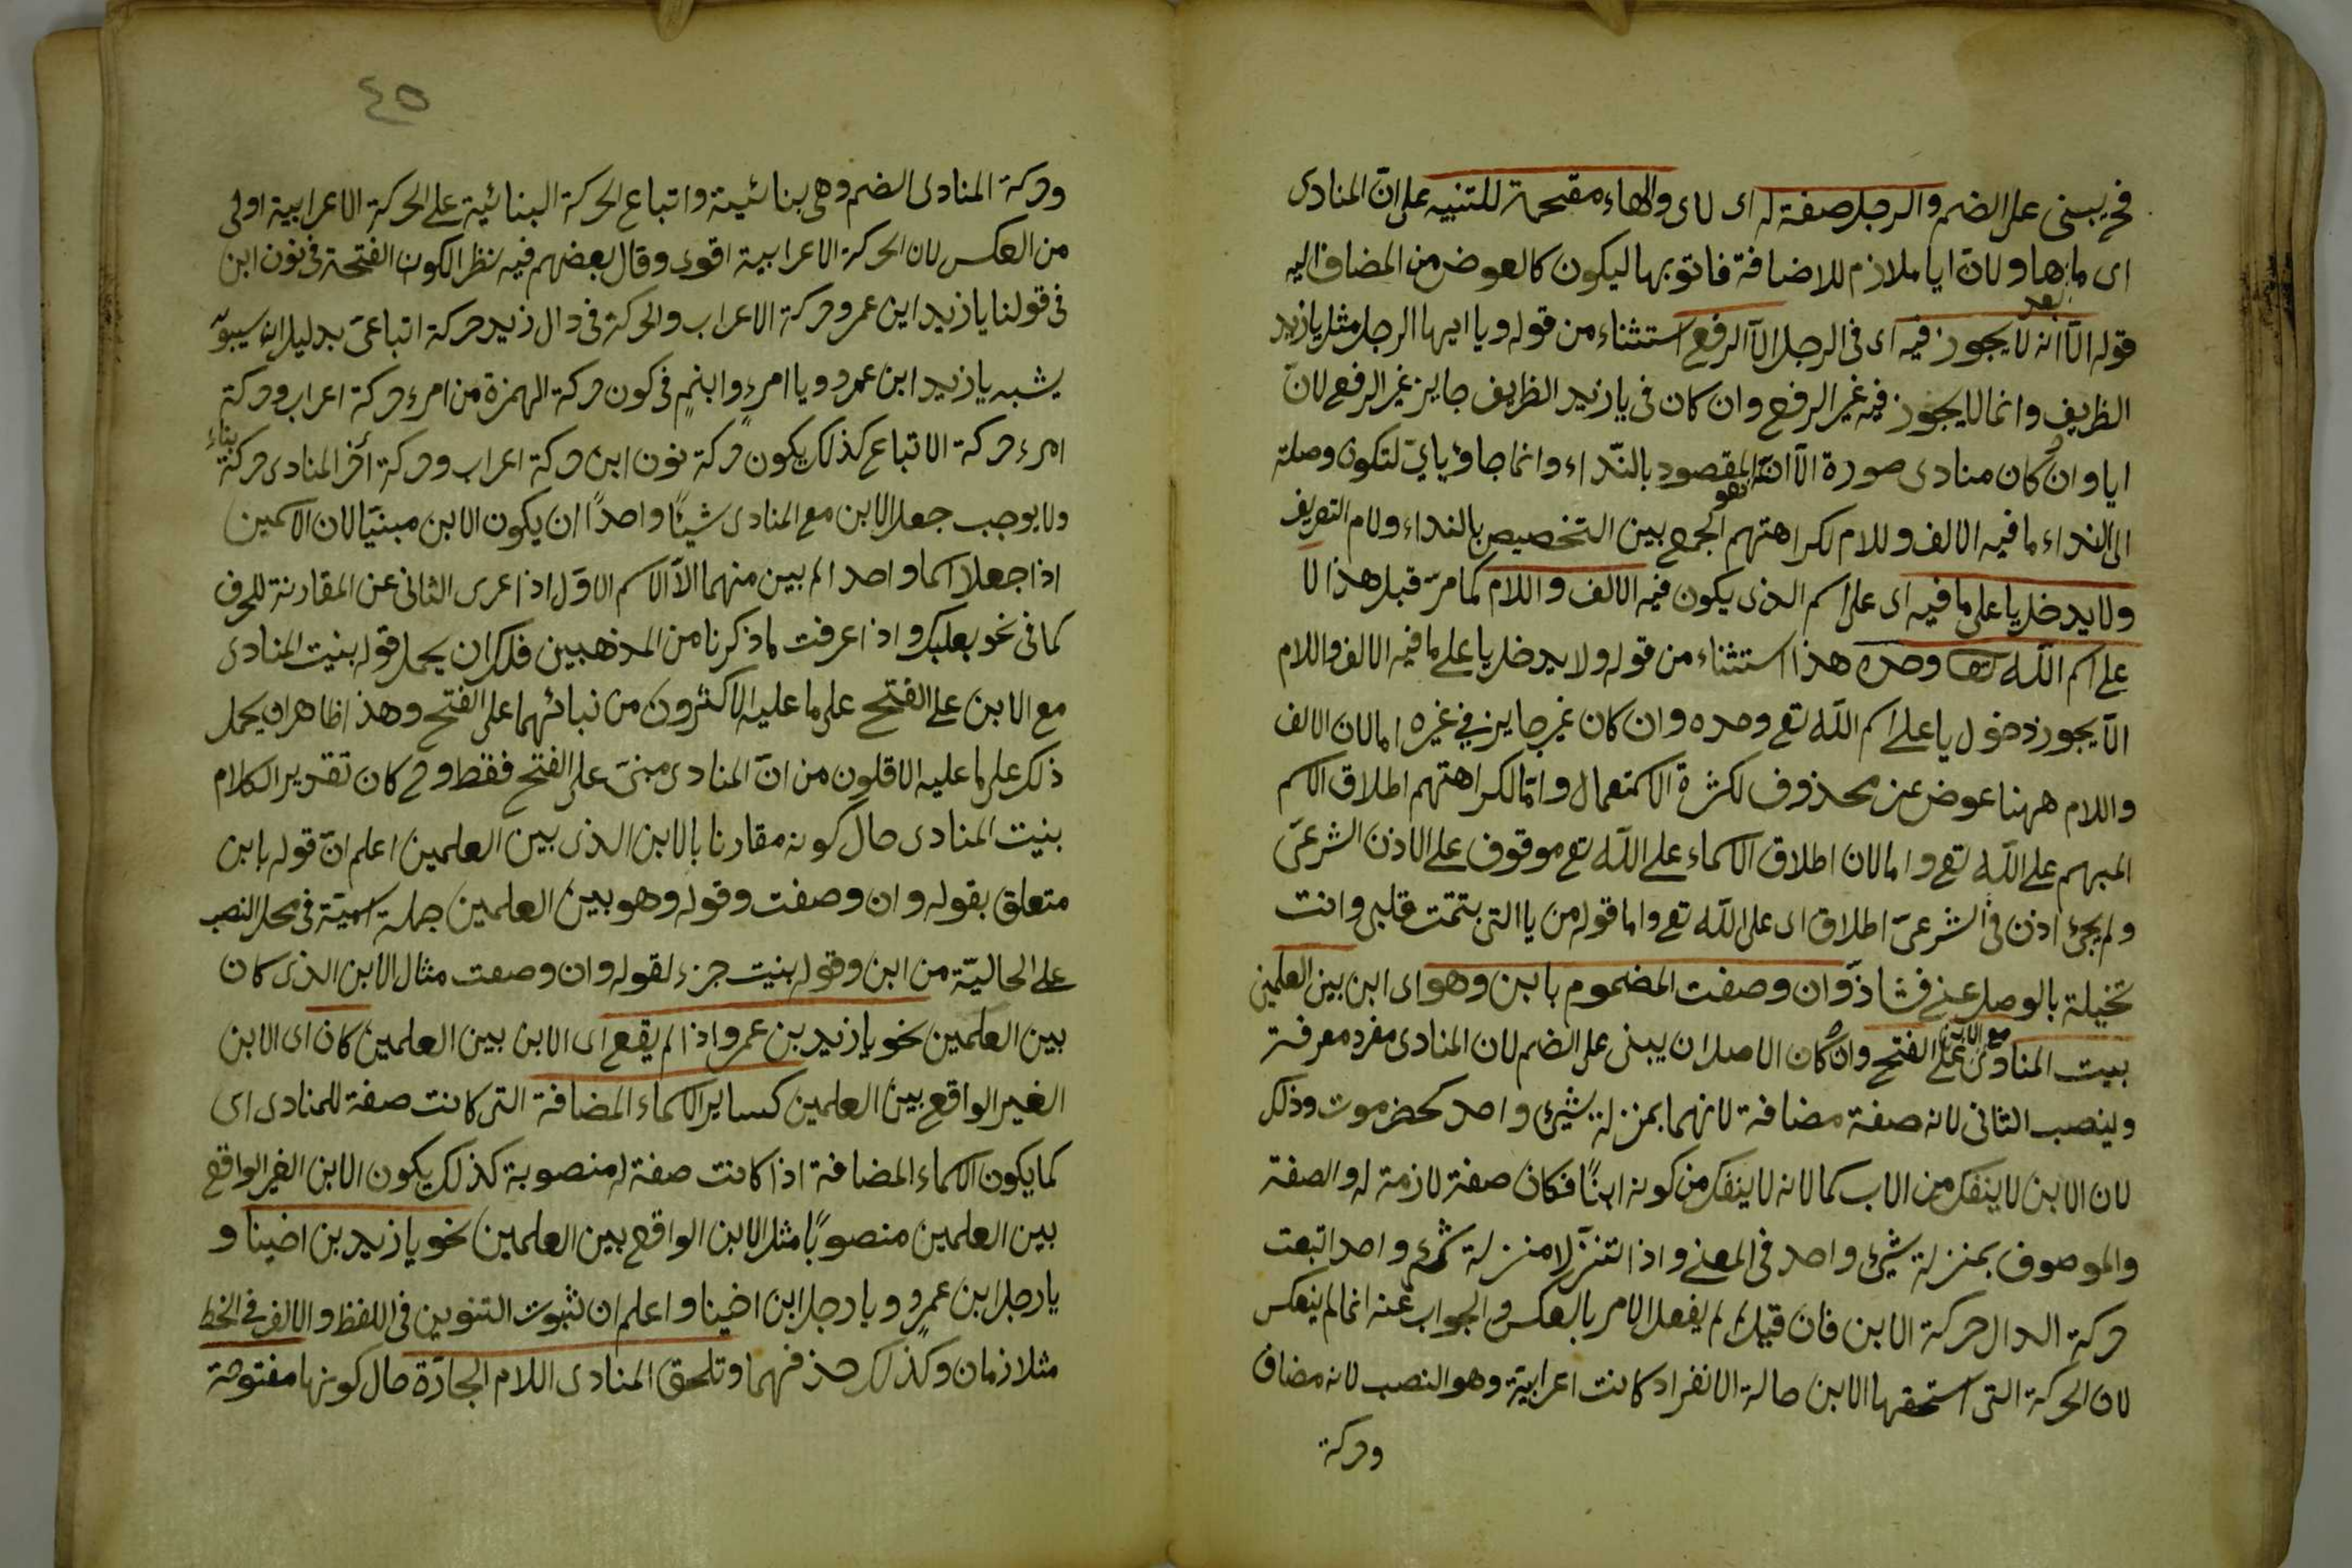 فح يبنى على الضم والرجل صفة له اى لاى والهاء مقحمة للتنبيه على انّ المنادى
اى ما بعدها ولانّ ايا ملازم للاضافة فاتو بها ليكون كالعوض من المضاف اليه
قوله الّا انه لا يجوز فيه اى فى الرجل الّا الرفع استثناء من قوله ويا ايها الرجل مثل يا زيد
الظريف وانما لا يجوز فيه غير الرفع وان كان فى يا زيد الظريف جايز غير الرفع لانّ
ايا وان كان منادى صورة الّا انّه المقصود بالنّداء وانما جاؤ باىّ لتكون وصلة
الى النداء ما فيه الالف وللام لكراهتهم الجمع بين التخصيص بالنداء ولام التعريف
ولا يدخل يا على ما فيه اى على اسم الذى يكون فيه الالف واللام كما مرّ قبل هذا لا
على اسم اللّه تعا وحده هذا استثناء من قوله ولا يدخل يا على ما فيه الالف واللام
الّا يجوز دخول يا على اسم اللّه تع وحده وان كان غير جايز في غيره امالان الالف
واللام ههنا عوض عن محذوف لكثرة الاستعمال وامّا لكراهتهم اطلاق الاسم
المبهم على اللّه تع وامالان اطلاق الاسماء على اللّه تع موقوف على الاذن الشرعىّ
ولم يجئ اذن فى الشرعىّ اطلاق اى على اللّه تع واما قوله من يا التى بتمّت قلبى وانت
تخيلة بالوصل عنى فشاذّ وان وصفت المضموم بابن وهو اى ابن بين العلمين
بنيت المنادى مع الابن على الفتح وان كان الاصل ان يبنى على الضم لان المنادى مفرد معرفة
وينصب الثانى لانه صفة مضافة لانهما بمنزلة شيئ واحد كحضرموت وذلك
لان الابن لا ينفك من الاب كما لانه لا ينفك من كونه ابنًا فكان صفة لازمة له والصفة
والموصوف بمنزلة شيئ واحد فى المعنى واذا التنزّلا منزلة شئ واحد اتبعت
حركة الدال حركة الابن فان قيل لم لم يفعل الامر بالعكس والجواب عنه انما لم ينعكس
لان الحركة التى استحقها الابن حالة الانفراد كانت اعرابية وهو النصب لانه مضاف
وحركة
٤٥
وحركة المنادى الضم وهى بنائيـة واتباع الحركة البنائية على الحركة الاعرابية اولى
من العكس لان الحركة الاعرابية اقوى وقال بعضهم فيه نظر لكون الفتحة فى نون ابن
فى قولنا يا زيد ابن عمرو حركة الاعراب والحركة فى دال زيد حركة اتباعىّ بدليل ان سيبوّ
يشبه يا زيد ابن عمرو ويا امرء وابنم فى كون حركة الهمزة من امرء حركة اعراب وحركة
امرء حركة الاتباع كذلك يكون حركة نون ابن حركة اعراب وحركة أخر المنادى حركة بناء
ولا يوجب جعل الابن مع المنادى شيئًا واحدًا ان يكون الابن مبنيّا لان الاسمين
اذا جعلا اسما واحدا لم يبين منهما الاّ الاسم الاوّل اذا عرى الثانى عن المقارنة للحرف
كما فى نحو بعلبك واذا عرفت ما ذكرنا من المذهبين فلك ان يحمل قوله بنيت المنادى
مع الابن على الفتح على ما عليه الاكثرون من بنائهما على الفتح وهذا ظاهر او يحمل
ذلك على ما عليه الاقلون من انّ المنادى مبنىّ على الفتح فقط وح كان تقدير الكلام
بنيت المنادى حال كونه مقارنا بالابن الذى بين العلمين اعلم انّ قوله بابن
متعلق بقوله وان وصفت وقوله وهو بين العلمين جملة اسميّة فى محل النصب
على الحاليّة من ابن وقوله بنيت جزء لقوله وان وصفت مثال الابن الذى كان
بين العلمين نحو يا زيد بن عمرو اذا لم يقع اى الابن بين العلمين كان اى الابن
الغير الواقع بين العلمين كساير الاسماء المضافة التى كانت صفة للمنادى اى
كما يكون الاسماء المضافة اذا كانت صفة له منصوبة كذلك يكون الابن الغير الواقع
بين العلمين منصوبًا مثل الابن الواقع بين العلمين نحو يا زيد بن اخينا و
يا رجل ابن عمرو ويا رجل ابن اخينا واعلم ان ثبوت التنوين فى اللفظ والالف فى الخط
مثلازمان وكذلك حذفهما وتلحق المنادى اللام الجارّة حال كونها مفتوحة